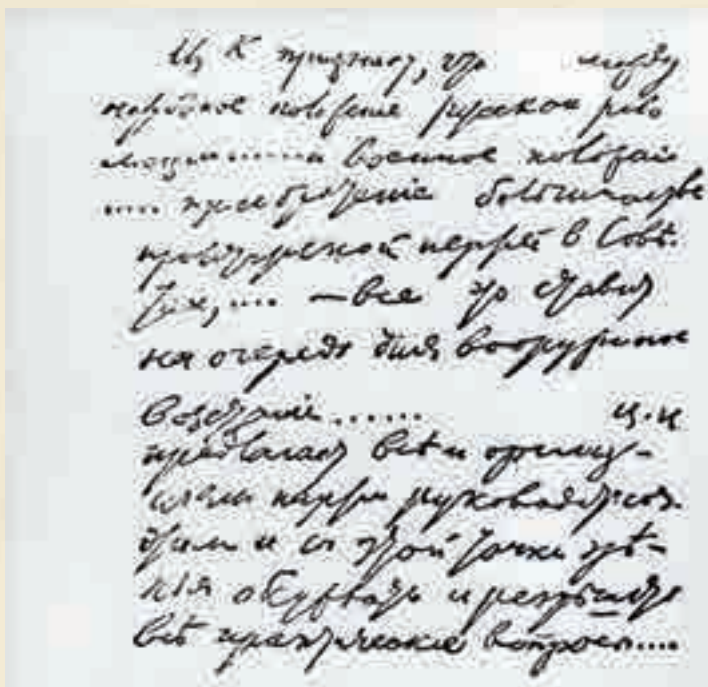 Ц К признает, что между
народное положение русской рево
люции........и военное положение
..... приобретение большинства
пролетарской партией в Совѣ.
тах,.... — все это ставит
на очередь дня вооруженное
возстание ...... Ц.К
предлагает всѣм организ-
циям партии руководиться
этим и съ этой точки зрѣ-
нія обсуждать и разрѣшать
всѣ практические вопросы....